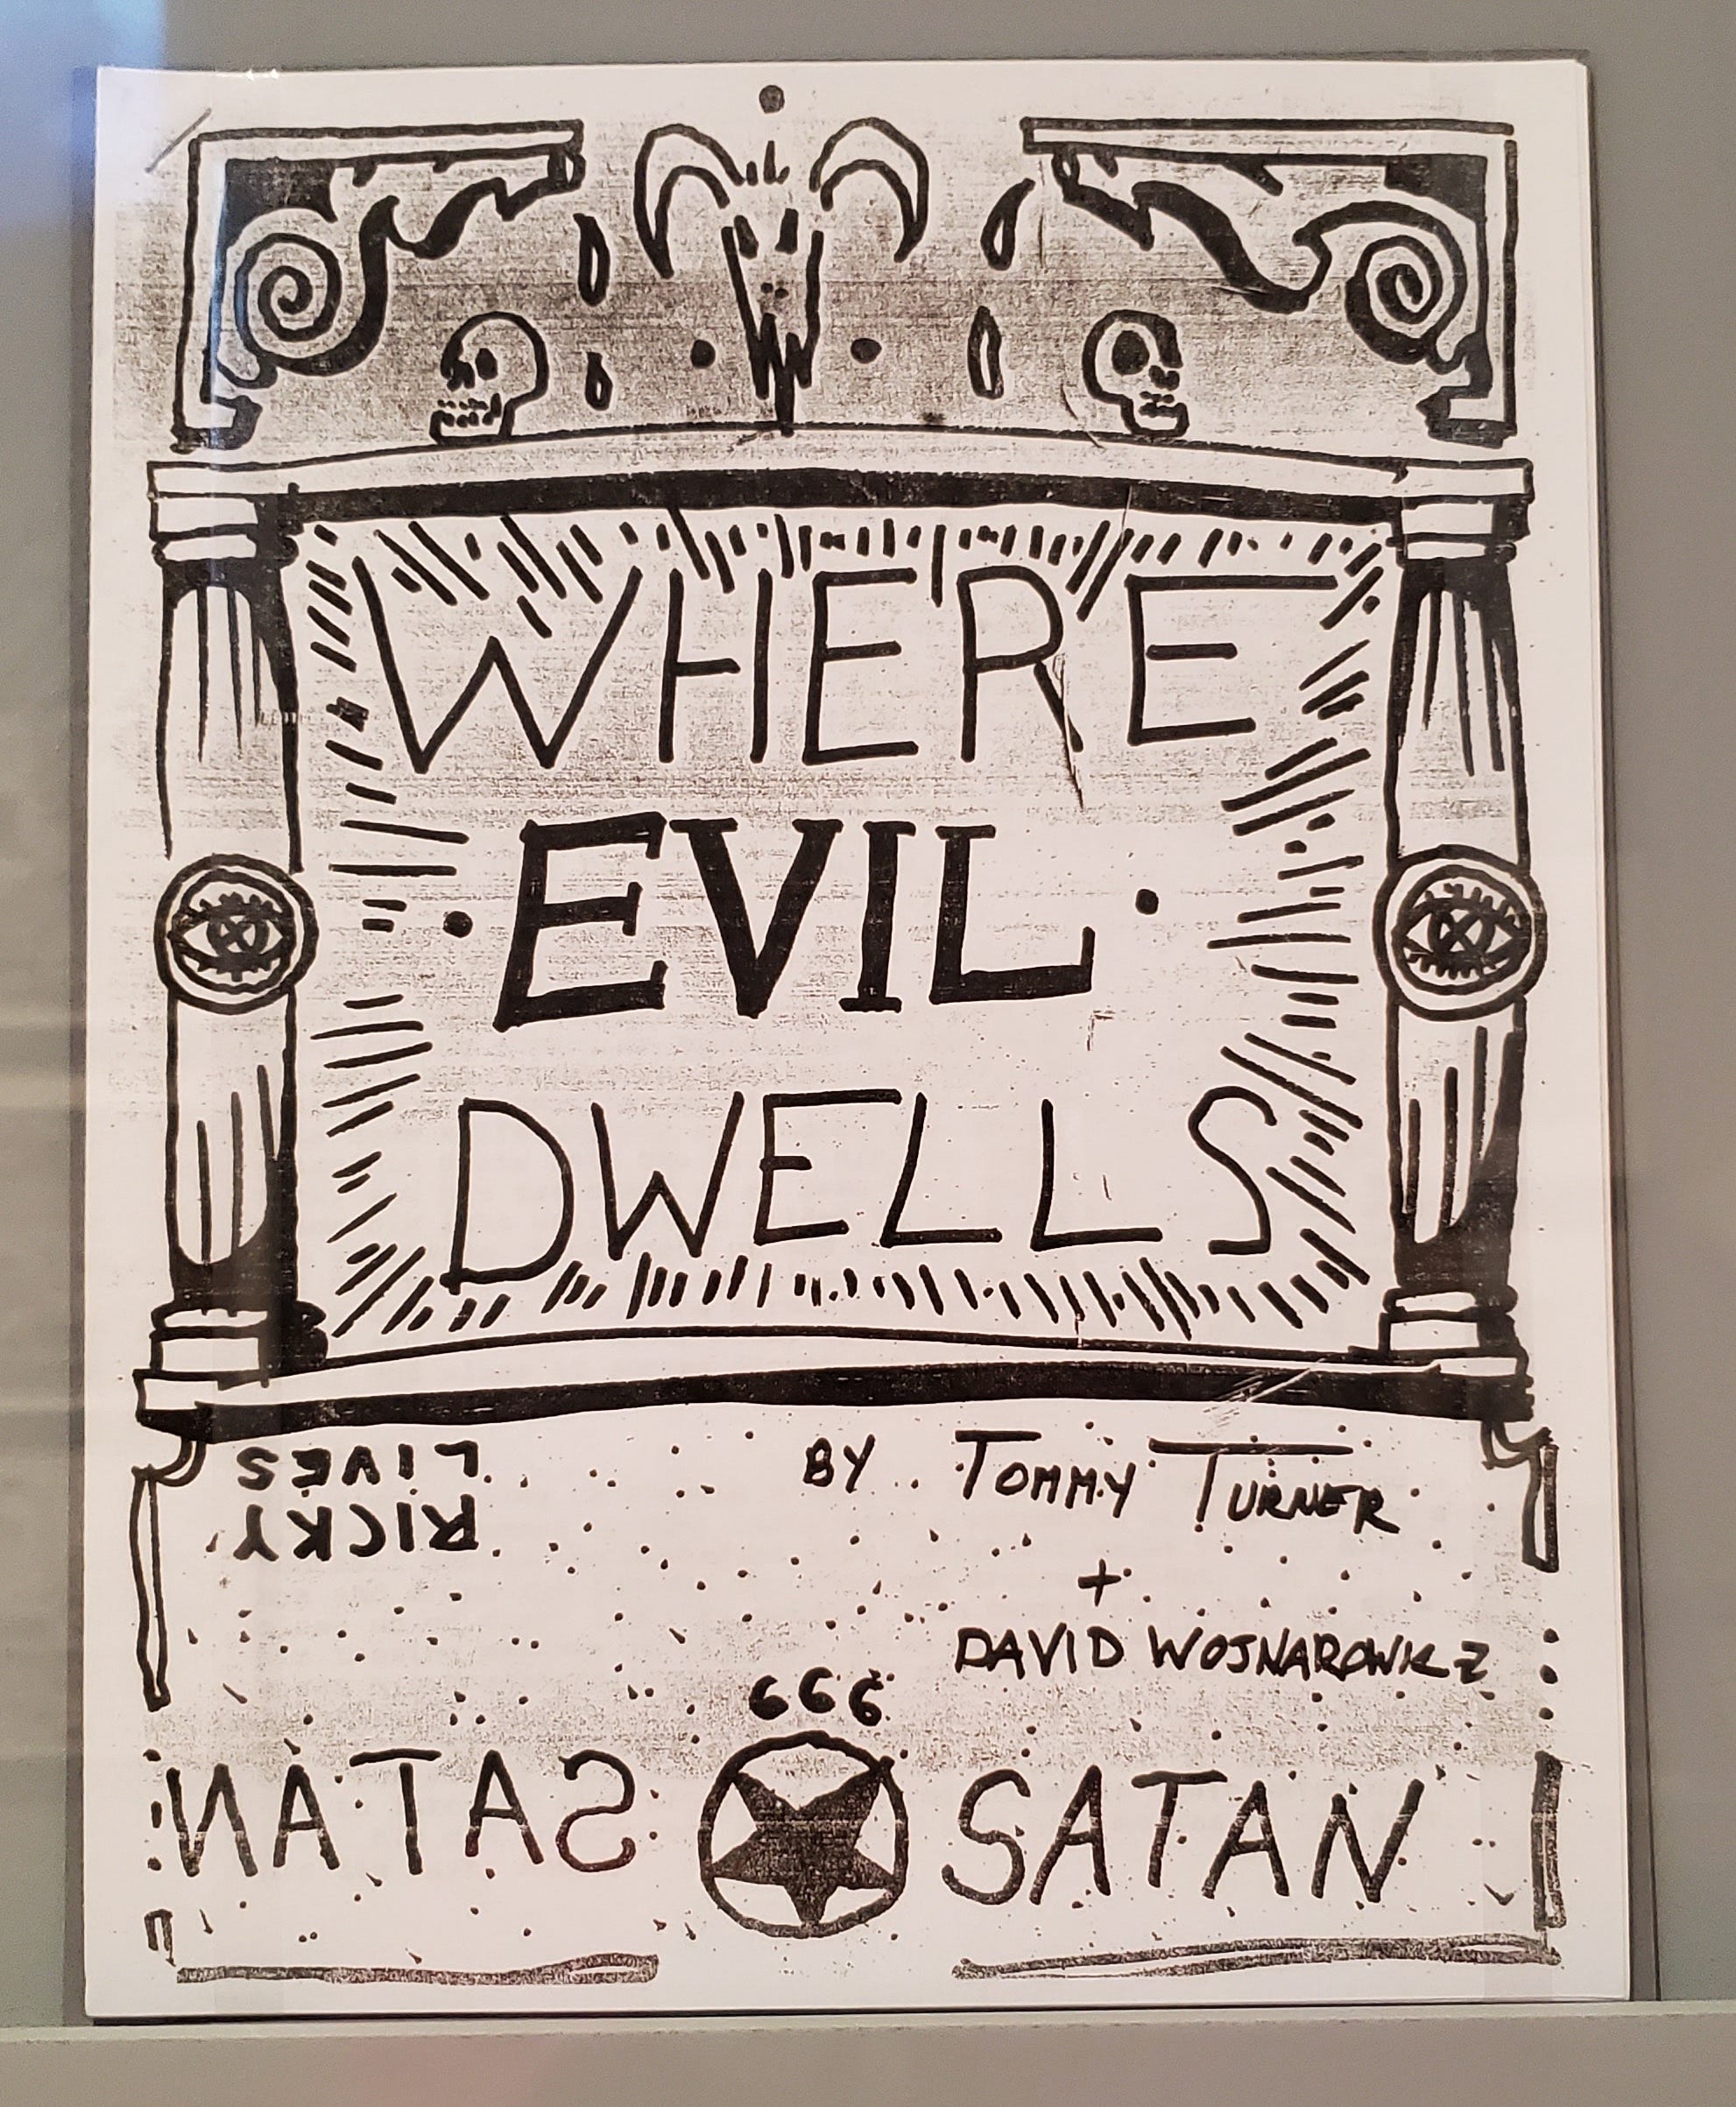 WHERE
EVIL
DWELLS
RICKY
LIVES
BY TOMMY TURNER
+
DAVID WOJNAROWICZ
666
SATAN SATAN